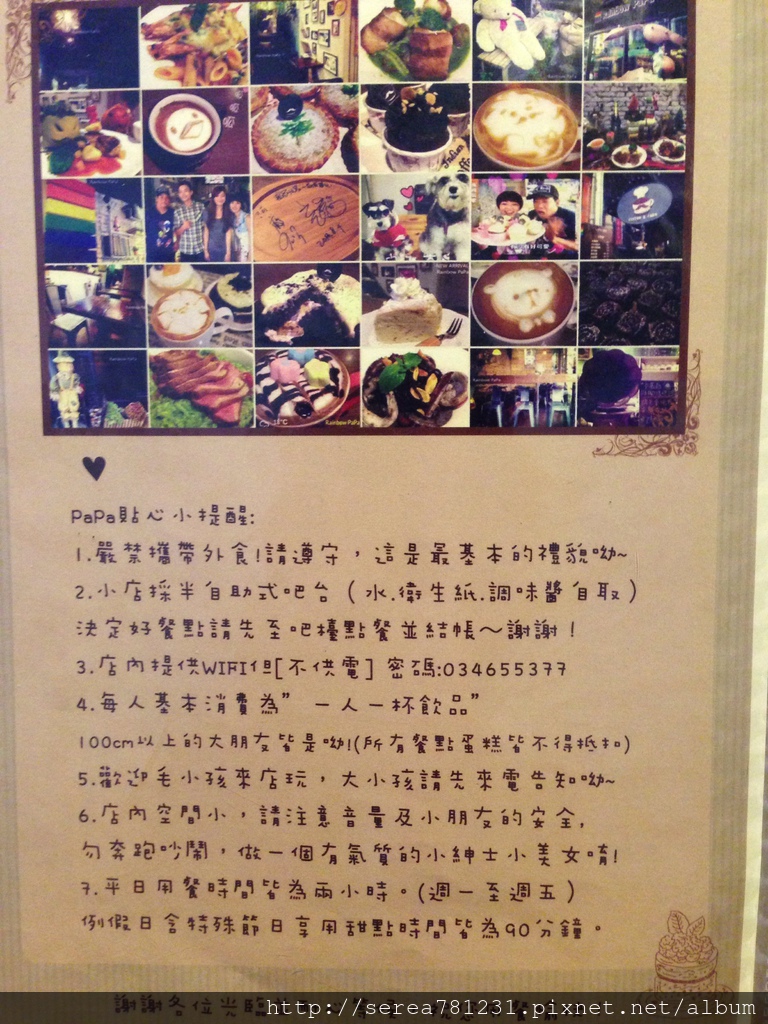 PaPa貼心小提醒:
1.嚴禁攜帶外食!請遵守，這是最基本的禮貌呦~
2.小店採半自助式吧台（水.衛生紙.調味醬自取）
決定好餐點請先至吧檯點餐並結帳～謝謝！
3.店內提供WIFI但[不供電] 密碼:034655377
4.每人基本消費為”一人一杯飲品”
100cm以上的大朋友皆是呦!(所有餐點蛋糕皆不得抵扣)
5.歡迎毛小孩來店玩，大小孩請先來電告知呦~
6.店內空間小，請注意音量及小朋友的安全,
勿奔跑吵鬧，做一個有氣質的小紳士小美女唷!
7.平日用餐時間皆為兩小時。(週一至週五)
例假日含特殊節日享用甜點時間皆為90分鐘。
謝謝各位光臨
http://serea781231.pixnet.net/album